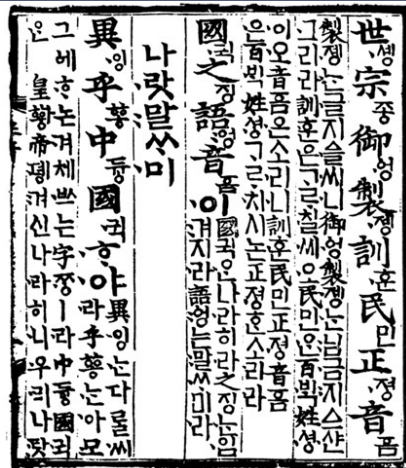 世솅宗종御ᅌᅥᆼ製졩訓훈民민正졍音ᅙᅳᆷ
製졩ᄂᆞᆫ글지ᅀᅳᆯ씨니御ᅌᅥᆼ製졩ᄂᆞᆫ님금지ᅀᅳ샨
그리라訓훈은ᄀᆞᄅᆞ칠씨오民민ᄋᆞᆫ百ᄇᆡᆨ姓셩
이오音ᅙᅳᆷ은소리니訓훈民민正졍音ᅙᅳᆷ
은百ᄇᆡᆨ姓셩ᄀᆞᄅᆞ치시논正졍ᄒᆞᆫ소리라
國귁之징語ᅌᅥᆼ音ᅙᅳᆷ이
國귁ᄋᆞᆫ나라히라之징ᄂᆞᆫ입
겨지라語ᅌᅥᆼᄂᆞᆫ말ᄊᆞ미라
나랏말ᄊᆞ미
異잉乎ᅘᅩᆼ中듀ᇰ國귁ᄒᆞ야
異잉ᄂᆞᆫ다ᄅᆞᆯ씨
라乎ᅘᅩᆼᄂᆞᆫ아모
그ᅌᅦᄒᆞ논겨체ᄡᅳ는字ᄍᆞᆼㅣ라中듀ᇰ國귁
ᄋᆞᆫ皇ᅘᅪᆼ帝뎽겨신나라히니우리나랏